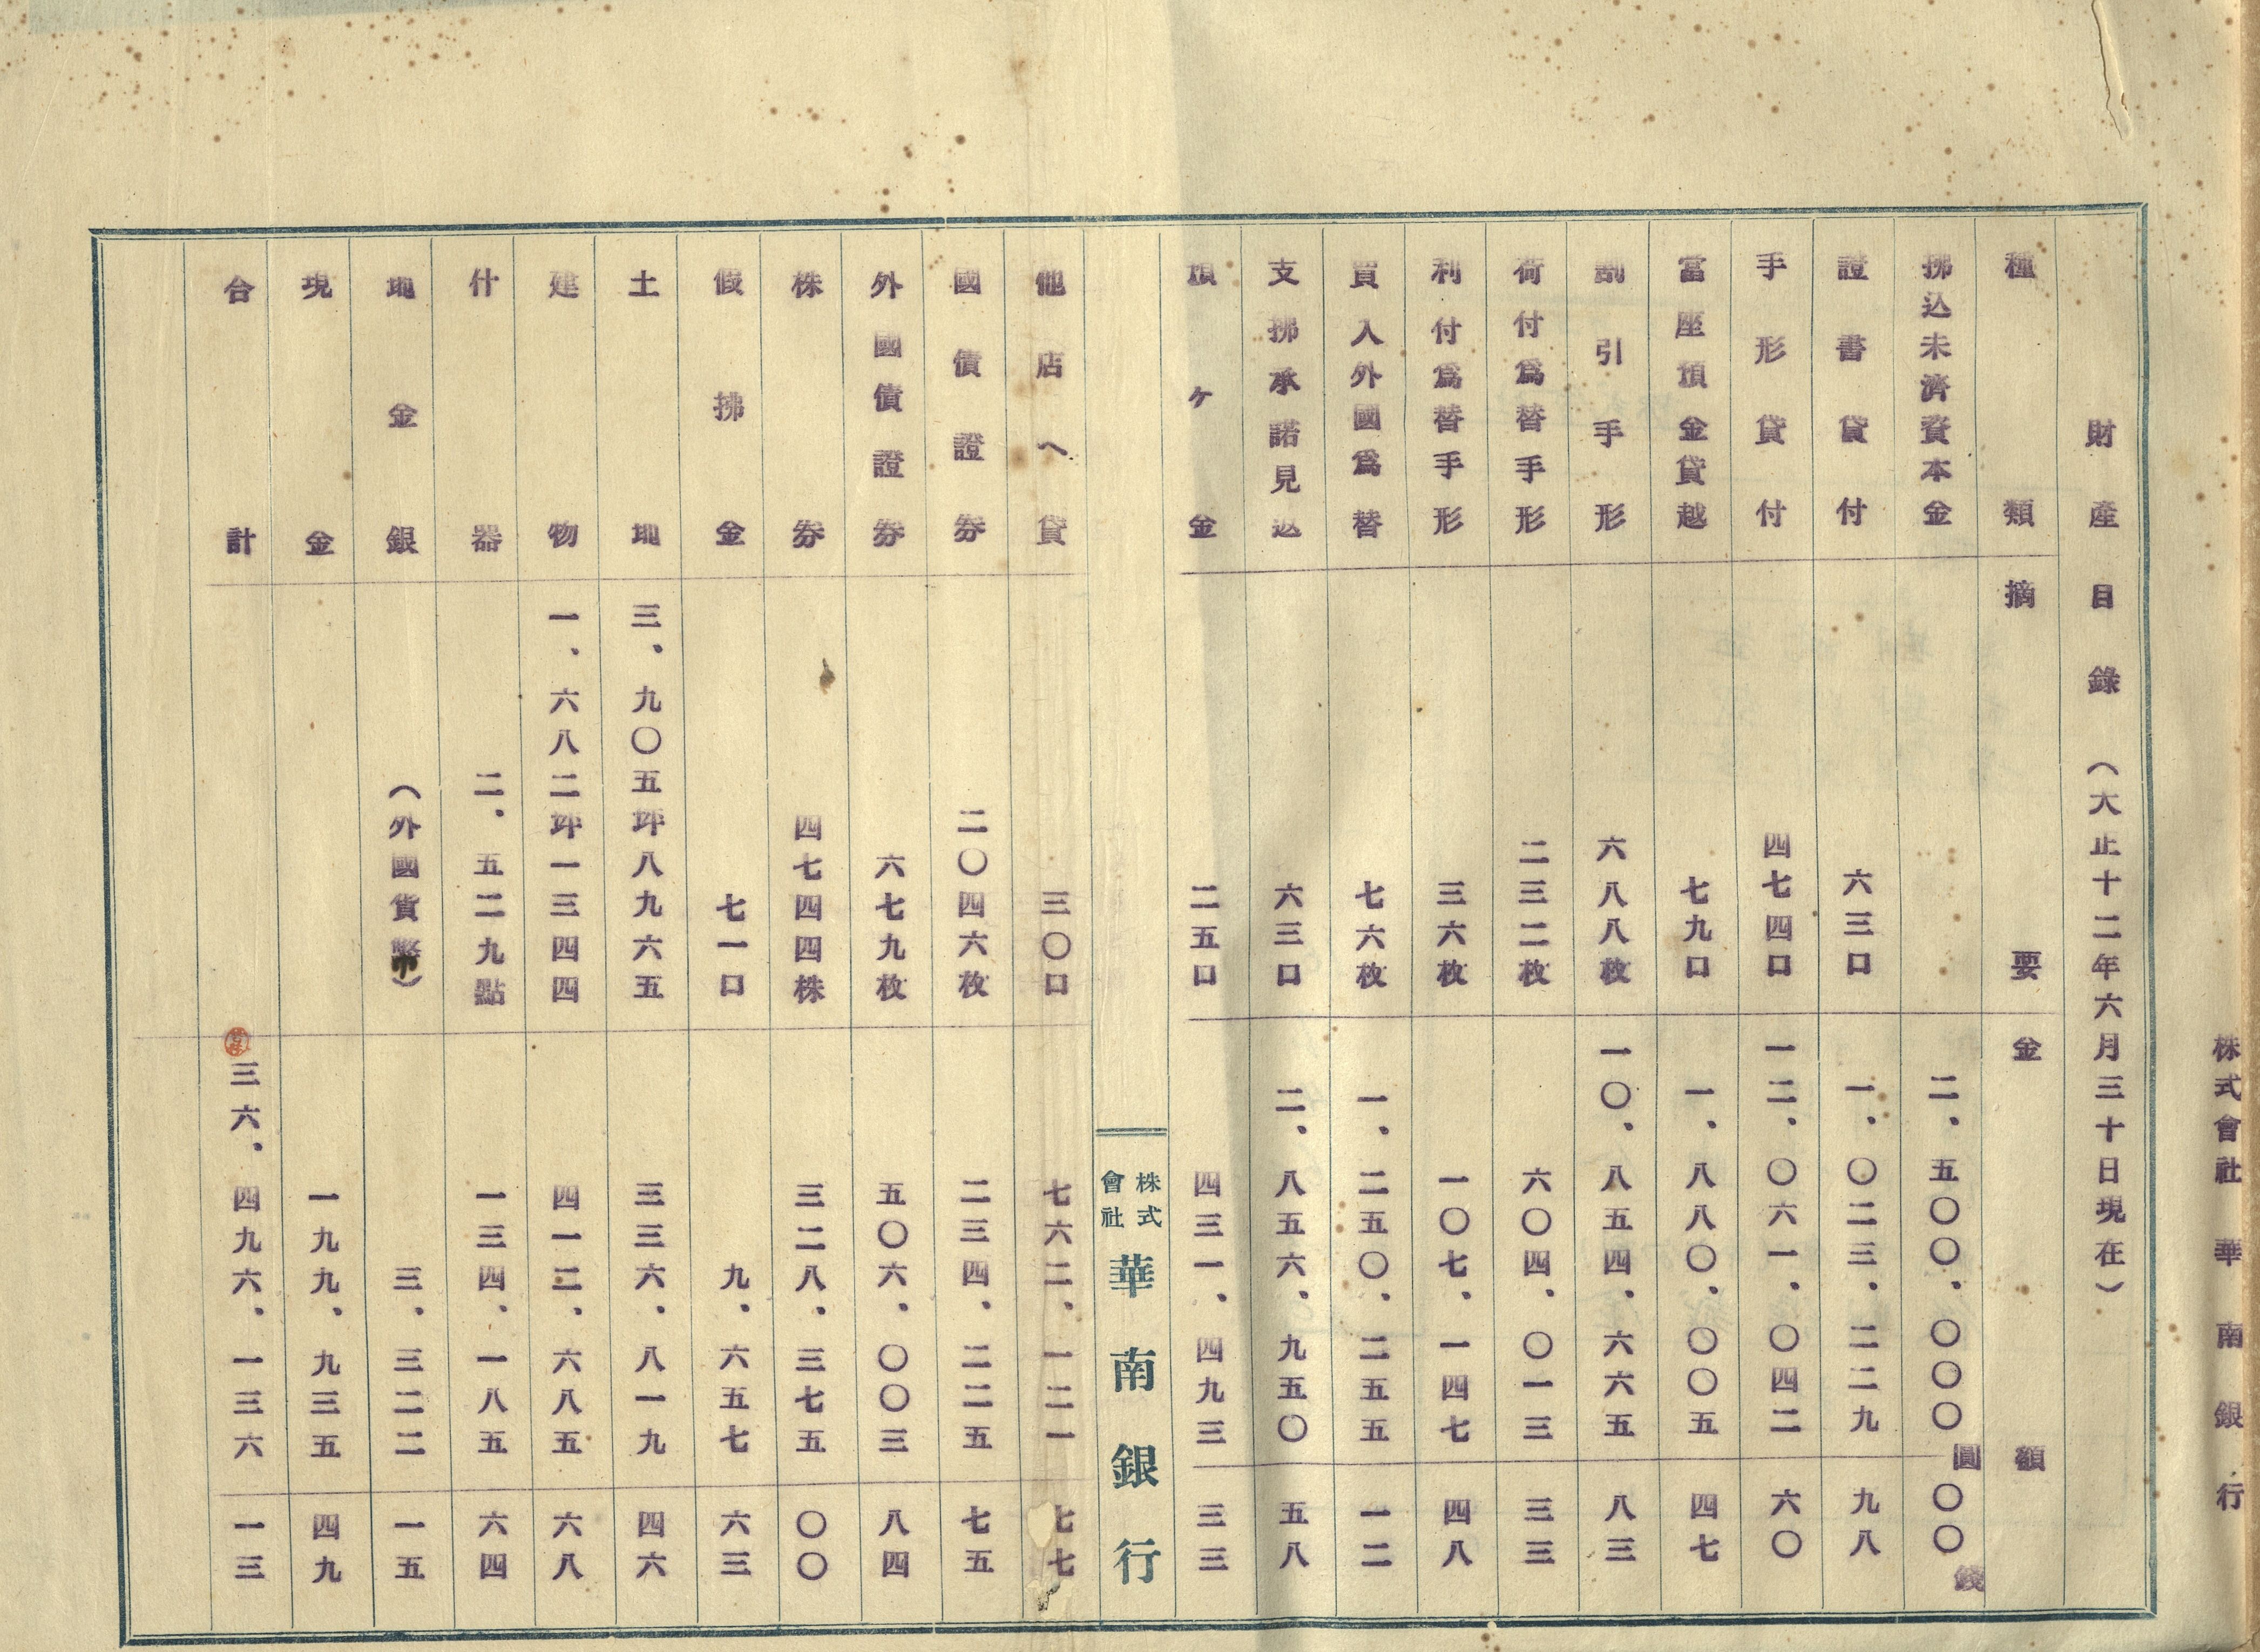 株式會社 華南銀行
財產目錄 (大正十二年六月三十日現在)
種類 摘要 金額
拂込未濟資本金 二、五〇〇、〇〇〇圓〇〇錢
證書貸付 六三口 一、〇二三、二二九 九八
手形貸付 四七四口 一二、〇六一、〇四二 六〇
當座預金貸越 七九口 一、八八〇、〇〇五 四七
割引手形 六八八枚 一〇、八五四、六六五 八三
荷付爲替手形 二三二枚 六〇四、〇一三 三三
利付爲替手形 三六枚 一〇七、一四七 四八
買入外國爲替 七六枚 一、二五〇、二五五 一二
支拂承諾見返 六三口 二、八五六、九五〇 五八
預ケ金 二五口 四三一、四九三 三三
株式會社 華南銀行
他店へ貸 三〇口 七六二、一二一 七七
國債證券 二〇四六枚 二三四、二二五 七五
外國債證券 六七九枚 五〇六、〇〇三 八四
株券 四七四四株 三二八、三七五 〇〇
假拂金 七一口 九、六五七 六三
土地 三、九〇五坪八九六五 三三六、八一九 四六
建物 一、六八二坪一三四四 四一二、六八五 六八
什器 二、五二九點 一三四、一八五 六四
地金銀 (外國貨幣) 三、三二二 一五
現金 一九九、九三五 四九
合計 三六、四九六、一三六 一三